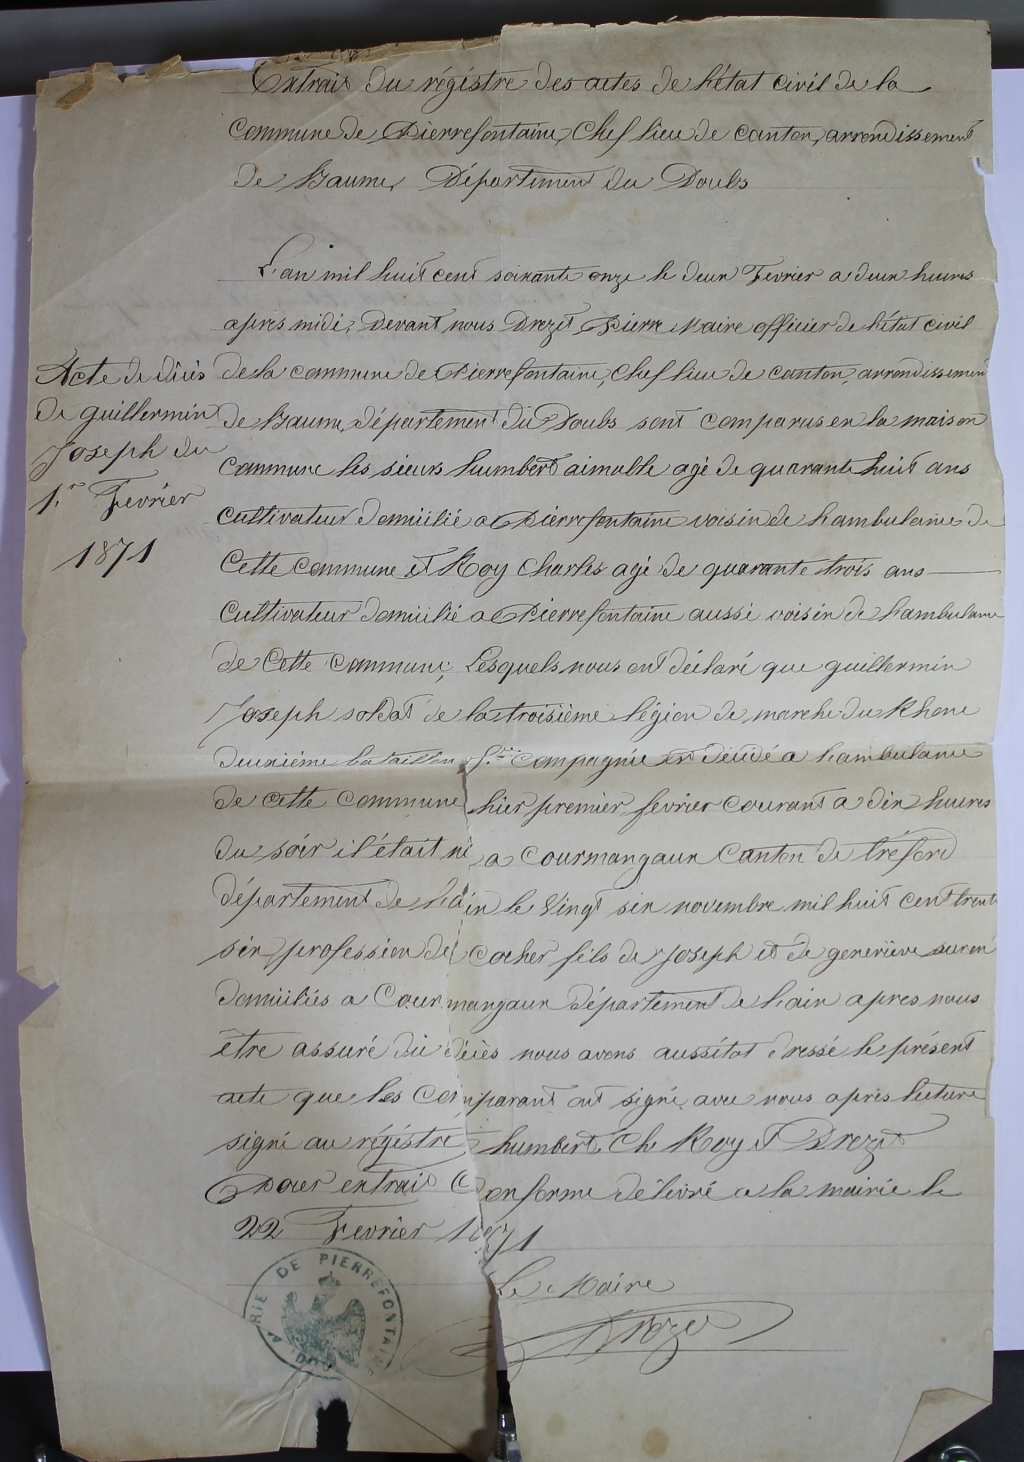 Extrait du régistre des actes de l'état civil de la
commune de Pierrefontaine, Chef lieu de canton, arrondissement
de Baume, Département du Doubs
L'an mil huit cent soixante onze le deux Fevrier a deux heures
apres midi, Devant nous Drezet Pierre Maire officier de l'état civil
Acte de décès
de guillermin
Joseph du
1.er Fevrier
1871
de la commune de Pierrefontaine, Chef lieu de canton, arrondissement
de Baume, département du Doubs sont comparus en la maison
commune les sieurs humbert aimable agé de quarante huit ans
cultivateur domicilié a Pierrefontaine voisin de l'ambulance de
Cette commune et Roy Charles agé de quarante trois ans
cultivateur domicilié a Pierrefontaine aussi voisin de l'ambulance
de Cette commune, Lesquels nous ont déclaré que guillermin
Joseph soldat de la troisième légion de marche du Rhone
deuxiéme bataillon compagnie est décédé a l'ambulance
de cette commune hier premier fevrier courant a dix heures
du soir il était né a Courmangoux Canton de tréfort
département de l'ain le Vingt six novembre mil huit cent trente
six profession de cocher fils de Joseph et de geneviève
domiciliés a Courmangoux département de l'ain apres nous
être assuré du décès nous avons aussitot dressé le présent
acte que les comparant ont signé avec nous après lecture
signé au régistre humbert, Ch Roy et Drezet
Pour extrait Conforme délivré a la mairie le
22 Fevrier 1871
Le Maire
Drezet
MAIRIE DE PIERREFONTAINE
DOUBS